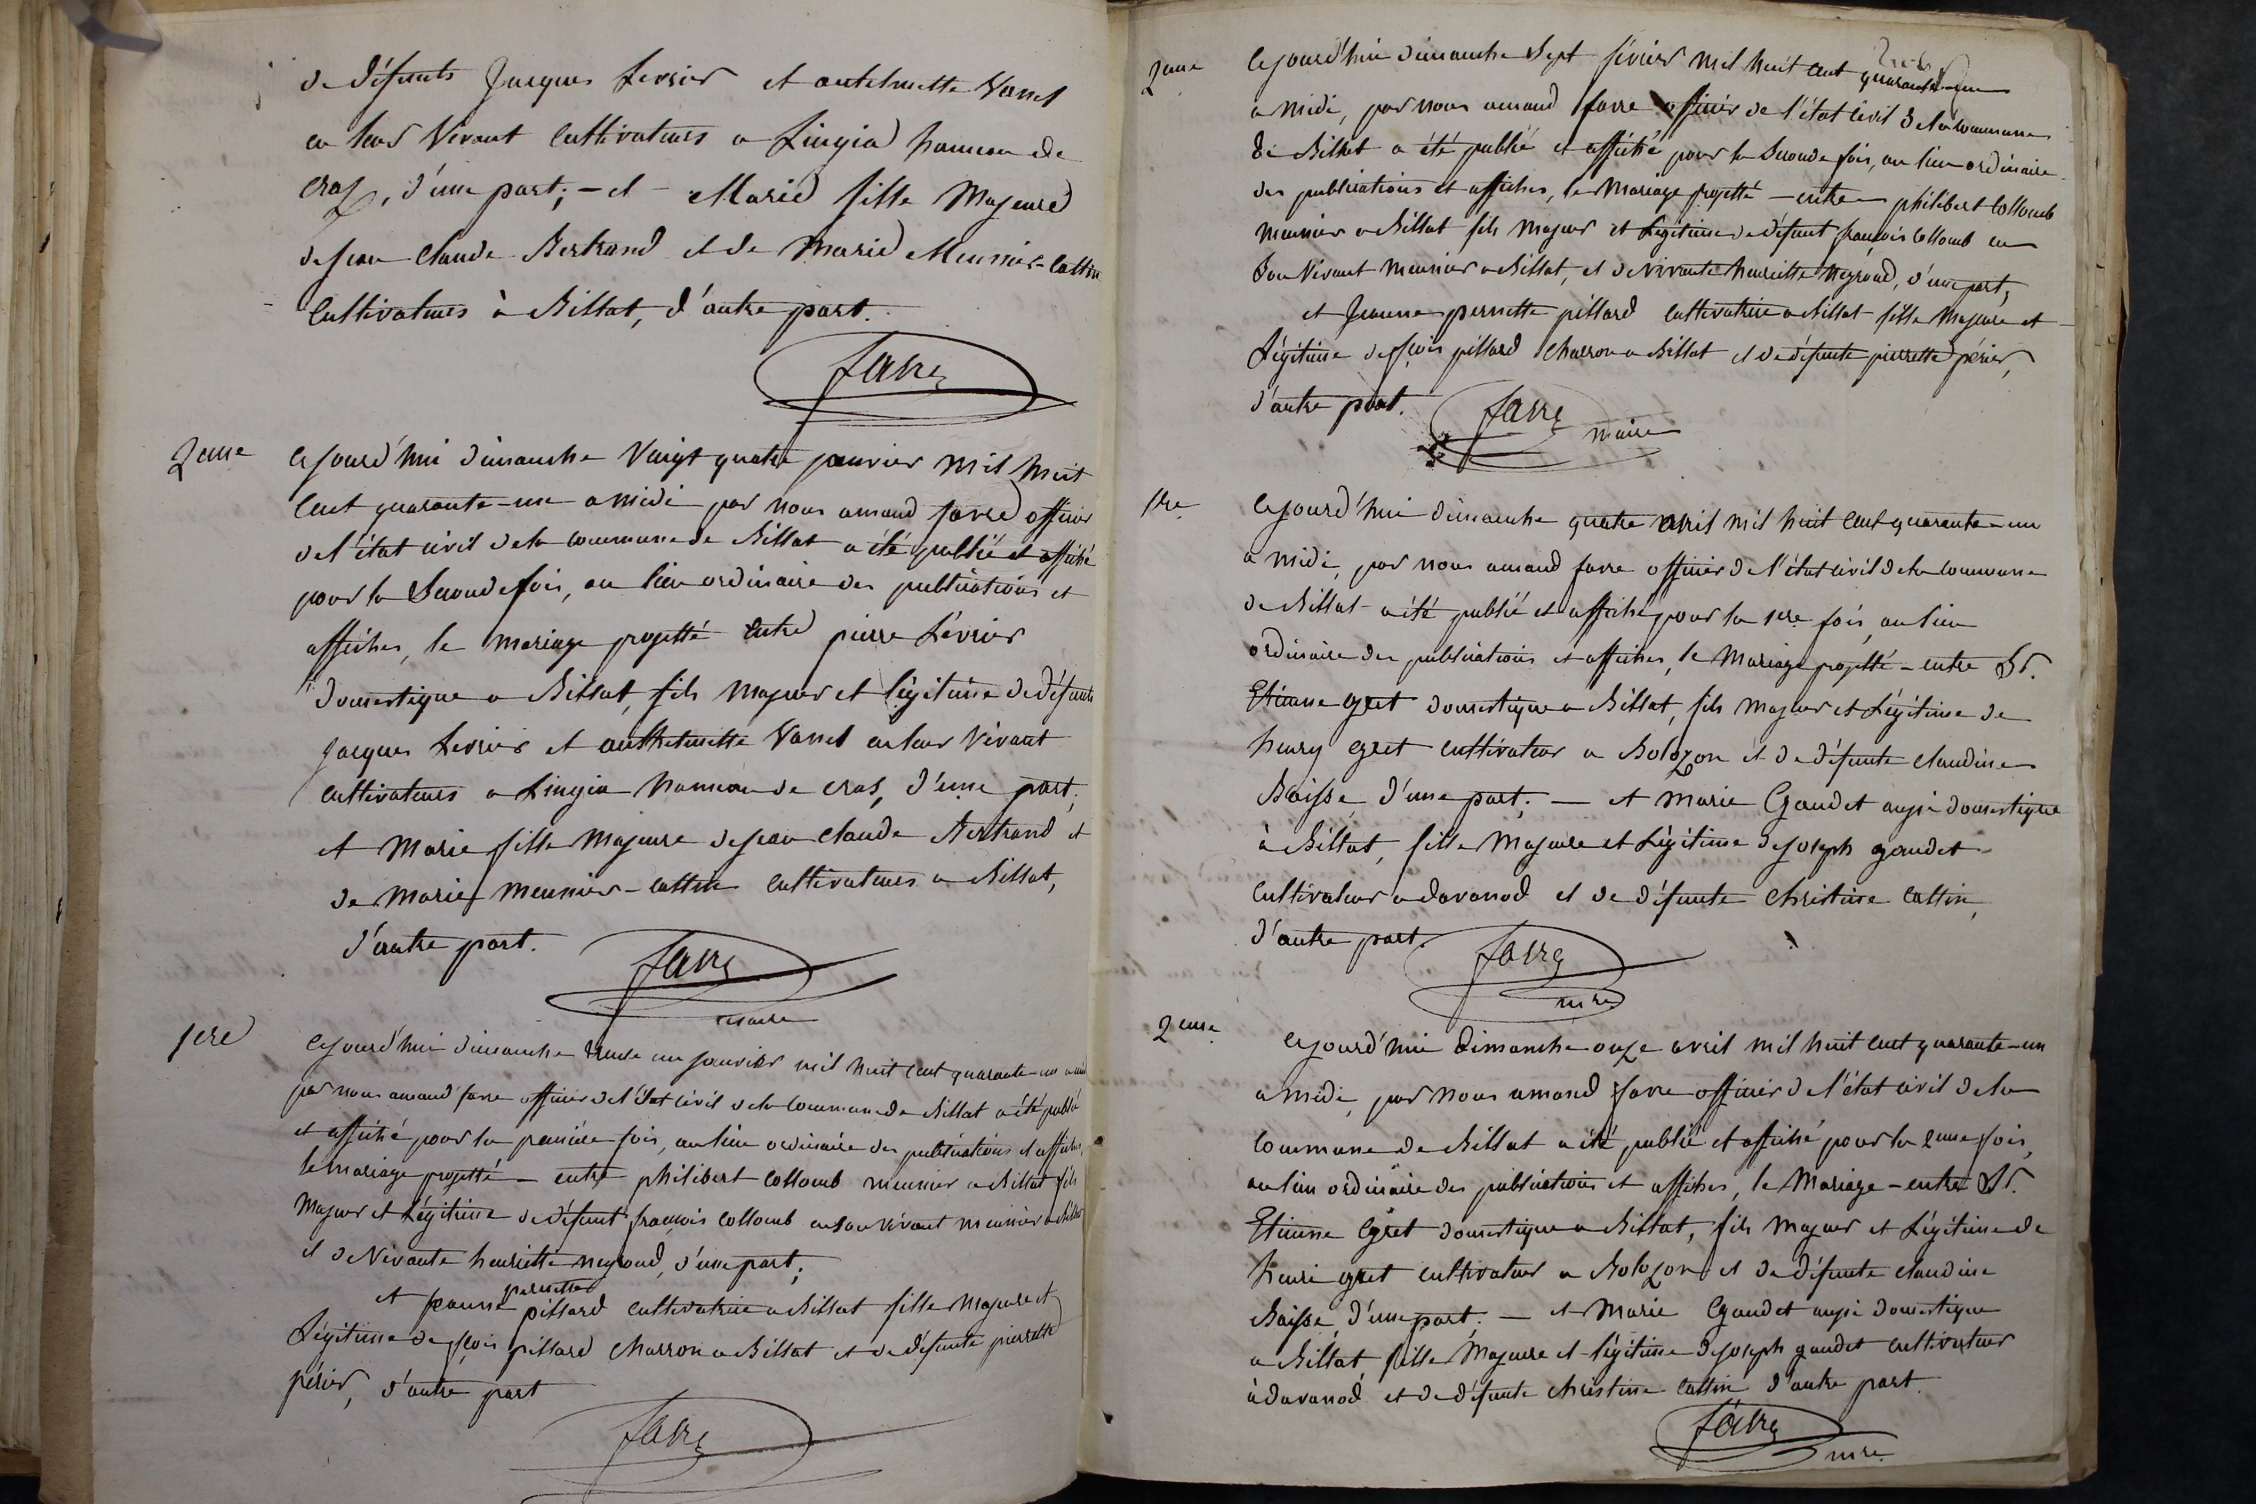 de défunts Jacques Levrier et antelmette Vanel
en leur Vivant Cultivateurs a Lingia hameau de
Craz, d'une part; - et - Marie fille Majeure
de jean Claude Bertrand et de Marie Meunier-Cattin
Cultivateurs à Billat, d'autre part.
favre
2eme
Cejourd'hui dimanche Vingt quatre janvier mil huit
Cent quarante-un a midi par nous amand favre officier
de l'état civil de la commune de Billat a été publié et affiché
pour la Seconde fois, au lieu ordinaire des publications et
affiches, le mariage projetté entre pierre Levrier
domestique a Billat, fils majeur et légitime de défunts
jacques Levrier et anthelmette Vanel en leur Vivant
Cultivateurs a Lingia hameau de cras, d'une part;
et Marie fille Majeure de jean Claude Bertrand et
de Marie meunier-cattin Cultivateurs a Billat,
d'autre part.
favre
maire
1ere
Cejourd'hui dimanche trente un janvier mil huit Cent quarante-un a midi
par nous amand favre officier de l'état civil de la commune de Billat a été publié
et affiché pour la premiere fois, au lieu ordinaire des publications et affiches,
le mariage projetté - entre philibert Collomb meunier a Billat fils
Majeur et Légitime de défunt françois Collomb en son vivant meunier a Billat
et de Vivante henriette neyroud, d'une part;
pernette
et jeanne pillard Cultivatrice a Billat fille Majeure et
Légitime de fçois pillard Charron a Billat et de défunte pierrette
périer, d'autre part
favre
2eme
Cejourd'hui dimanche Sept février mil huit Cent quarante-un
a midi, par nous amand favre officier de l'état civil de la commune
de Billat a été publié et affiché pour la Seconde fois, au lieu ordinaire
des publications et affiches, le Mariage projetté - entre philibert Collomb
meunier a Billat fils majeur et Légitime de défunt françois Collomb en
Son Vivant meunier a Billat, et de Vivante henriette Neyroud, d'une part,
et Jeanne pernette pillard Cultivatrice a Billat fille Majeure et
Légitime de fçois pillard Charron a Billat et de défunte pierrette périer,
d'autre part.
favre
maire
1re
Cejourd'hui dimanche quatre avril mil huit Cent quarante-un
a midi, par nous amand favre officier de l'état civil de la commune
de Billat a été publié et affiché pour la 1ere fois, au lieu
ordinaire des publications et affiches, le Mariage projetté - entre Sr.
Etienne Egret domestique a Billat, fils Majeur et Légitime de
henry Egret Cultivateur a Bolozon et de défunte Claudine
Baisse, d'une part; - et Marie Gaudet aussi domestique
à Billat, fille Majeure et Légitime de joseph gaudet
Cultivateur a davanod et de défunte Christine Cattin,
d'autre part.
favre
mre
2eme
Cejourd'hui dimanche onze avril mil huit Cent quarante-un
a midi, par nous amand favre officier de l'état civil de la
Commune de Billat a été publié et affiché pour la 2eme fois,
au lieu ordinaire des publications et affiches, le Mariage - entre Sr.
Etienne Egret domestique a Billat, fils Majeur et Légitime de
henri Egret Cultivateur a Bolozon et de défunte Claudine
Baisse, d'une part; - et Marie Gaudet aussi domestique
a Billat, fille Majeure et légitime de joseph gaudet Cultivateur
à davanod et de défunte Christine Cattin d'autre part.
favre
mre